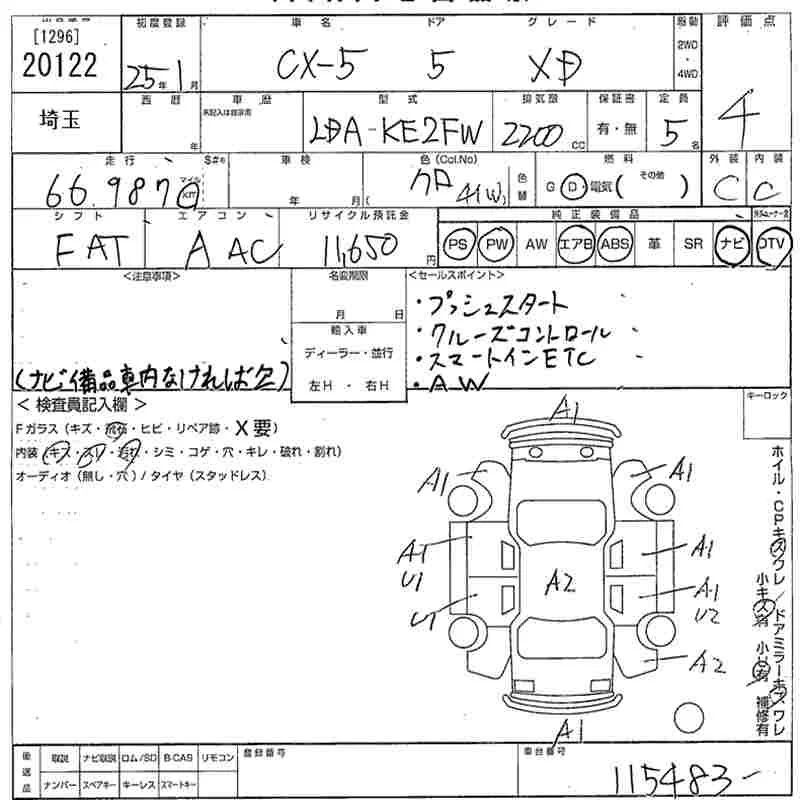 [1296]
20122
初度登録
25年1月
車名
CX-5
ドア
5
グレード
XD
駆動
2WD
・
4WD
評価点
4
埼玉
西暦
年
車歴
未記入は自家用
型式
LDA-KE2FW
排気量
2200cc
保証書
有・無
定員
5名
走行
66,987
マイル
Km
S#®
車検
年 月(
色(Col.No)
クロ 41(W)
)
色替
燃料
G D・電気( その他 )
外装
C
内装
C
シフト
FAT
エアコン
AAC
リサイクル預託金
11,650円
純正装備品
PS PW AW エアB ABS 革 SR ナビ DTV
<注意事項>
(ナビ備品車内なければ欠)
名変期限
月 日
輸入車
ディーラー・並行
左H ・ 右H
<セールスポイント>
・プッシュスタート
・クルーズコントロール
・スマートインETC
・AW
<検査員記入欄>
Fガラス(キズ・飛石・ヒビ・リペア跡・X要)
内装(キズ・スレ・汚れ・シミ・コゲ・穴・キレ・破れ・割れ)
オーディオ(無し・穴)/タイヤ(スタッドレス)
キーロック
A1
A1
A1
A1
U1
A1
A2
U1
A1
U2
A2
A1
ホイル・CPキズワレ/ドアミラーキズ・ワレ
小キズ有 小凹有 補修有
後送品
取説 ナビ取説 ロム/SD B-CAS リモコン
ナンバー スペアキー キーレス スマートキー
登録番号
車台番号
115483-